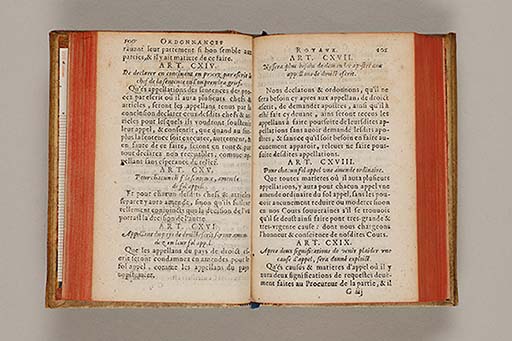 100 ORDONNANCES
rauant leur partement si bon semble aux
parties, & il y ait matiere de ce faire.
ART. CXIIII.
De declarer en concluant en procez par escrit à
chef de la sentence est l'on prendre grief.
Qu'és appellations des sentences des pro-
cez par escrit où il aura plusieurs chefs &
articles, seront les appellans tenus par la
conclusion declarer ceux desdits chefs & ar-
ticles pour lesquels ils voudront soustenir
leur appel, & consentir, que quand au sur-
plus la sentence soit executee, autrement, &
en faute de ce faire, seront en tout &
tout declarez non receuables, comme ap-
pellans sans esperance de relief.
ART. CXV.
Pour chacun chef de sentence, amende
de fol appel.
Et pour chacun desdits chefs & articles
separez y aura amende, sinon qu'ils fussent
tellement conjoincts que la decision de l'un
portast la decision de l'autre.
ART. CXVI.
Appellans du pays de droict escrit seront amen-
dez en leur fol appel.
Que les appellans du pays de droict es-
crit seront condamnez en amendes pour le
fol appel, comme les appellans du pays
coustumier.
ROYAVX. 101
ART. CXVII.
Ne sera plus besoin de demander apostres aux
appellans de droict escrit.
Nous declarons & ordonnons, qu'il ne
sera besoin cy apres aux appellans de droict
escrit, de demander apostres, ainsi qu'il a
esté fait cy deuant, ains seront receus les
appellans à faire poursuite de leursdites ap-
pellations sans auoir demandé lesdits apo-
stres, & sans ce qu'il soit besoin en faire au-
cunement apparoir, releuer ne faire pour-
suite desdites appellations.
ART. CXVIII.
Pour chacun fol appel vne amende ordinaire.
Que toutes matieres où il aura plusieurs
appellations, y aura pour chacun appel vne
amende ordinaire du fol appel, sans les pou-
uoir aucunement reduire ou moderer sinon
en nos Cours souueraines s'il se trouuoit
qu'il se deust ainsi faire pour tres-grande &
tres-vrgente cause: dont nous chargeons
l'honneur & conscience de nosdites Cours.
ART. CXIX.
Apres deux significations de venir plaider vne
cause d'appel, sera donné exploict.
Qu'és causes & matieres d'appel où il y
aura deux significations de requestes deuë-
ment faites au Procureur de la partie, & il
G iij